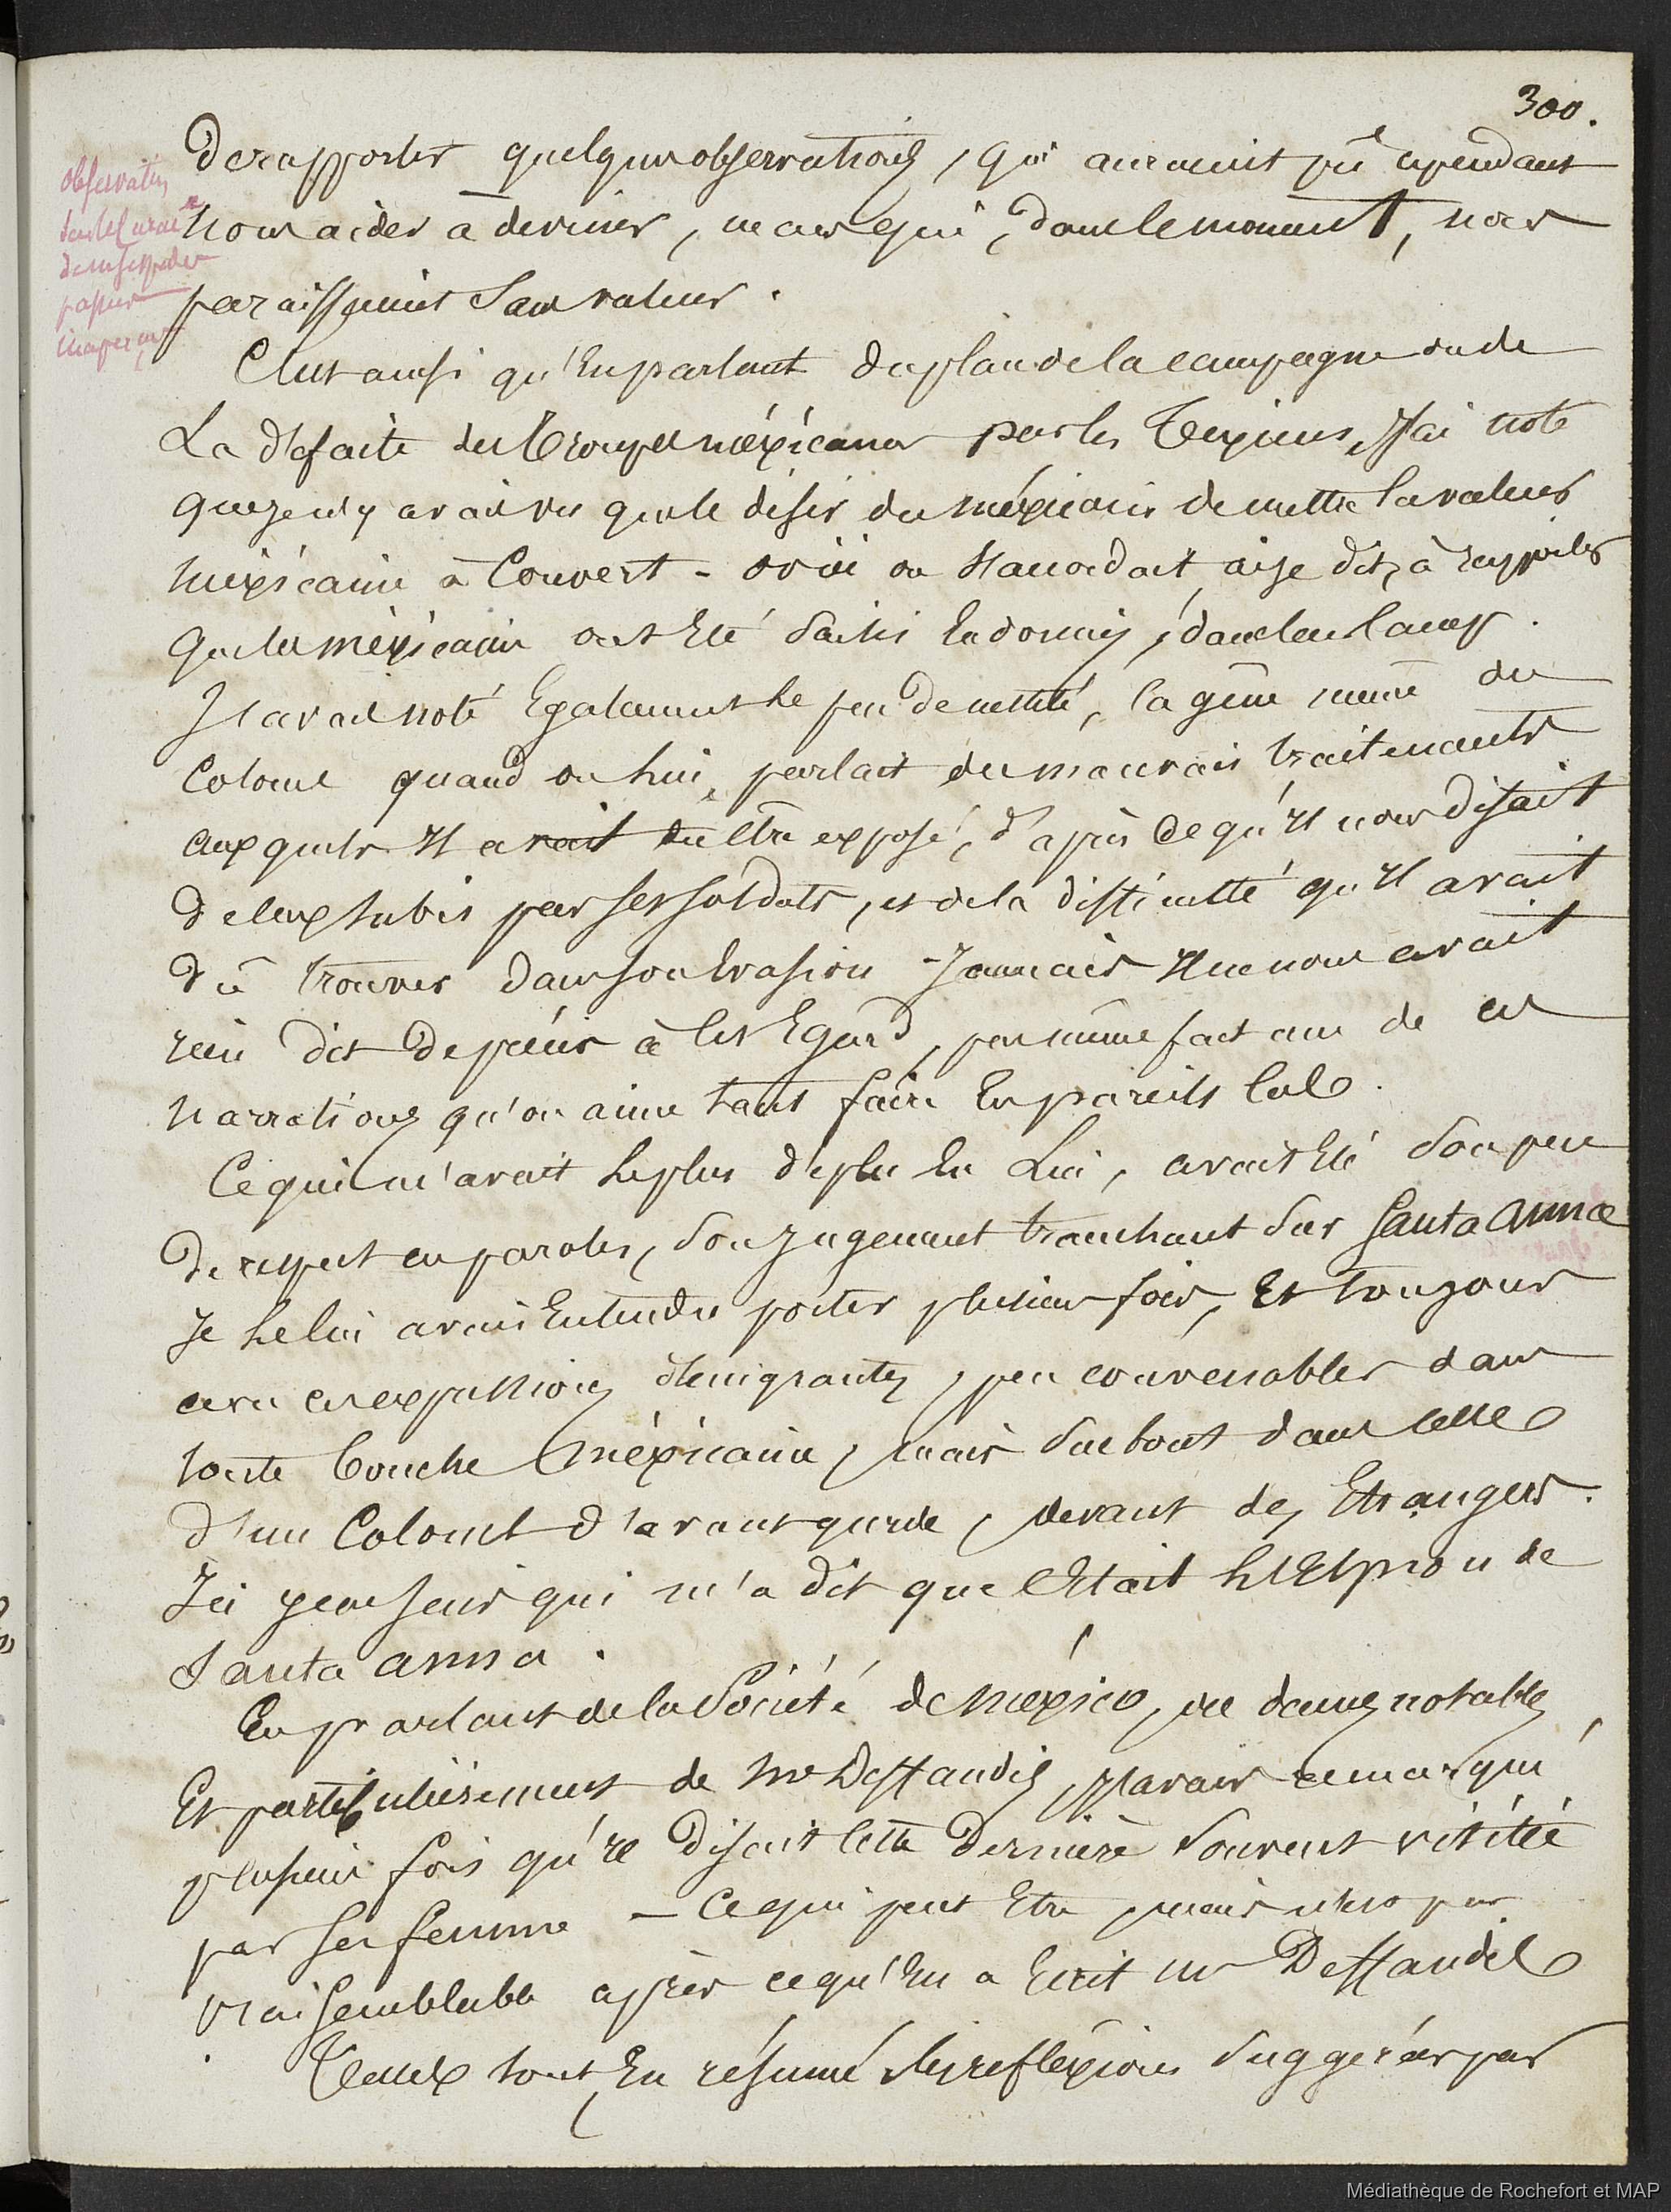 300.
de rapporter quelques observations, qui auraient pû cependant
nous aider à deviner, mais qui, dans le moment, nous
paraissaient sans valeur.
observations
passées
inaperçues
C'est ainsi qu'en parlant du plan de la campagne ou de
La défaite des troupes méxicaines par les Texiens, j'ai noté
que je n'y avais vu que le désir du méxicain de mettre la valeur
méxicaine à couvert - or ici on s'accordait, ai-je dit, à
que les méxicains ont été saisis endormis, dans leur camp.
J'avais noté Egalement le peu de netteté, la gêne même du
Colonel quand on lui parlait des mauvais traitements
auxquels il avait dû être exposé, d'après ce qu'il nous disait
de ceux subis par ses soldats, et de la difficulté qu'il avait
dû trouver dans son Evasion - Jamais il ne nous avait
rien dit de précis à cet Egard, pas même fait une de ces
narrations qu'on aime tant faire En pareils cas.
Ce qui m'avait le plus déplu En Lui, avait Eté son peu
de respect en paroles, son jugement tranchant sur Santa Anna
Je le lui avais Entendu porter plusieurs fois, Et toujours
avec ces expressions dénigrantes, peu convenables dans
toute bouche méxicaine, mais surtout dans celle
d'un Colonel d'avant garde, devant des Etrangers.
qui m'a dit que c'Etait l'Espion de
Santa anna.
En parlant de la Société de méxico, des dames notables,
Et particulièrement de Me Deffaudis, j'avais remarqué
plusieurs fois qu'il disait cette dernière souvent visitée
par sa femme - Ce qui peut Etre, mais n'est pas
vraisemblable après ce qu'en a Ecrit Mr Deffaudis
Telles sont, En résumé, les réflexions suggérées par
Médiathèque de Rochefort et MAP